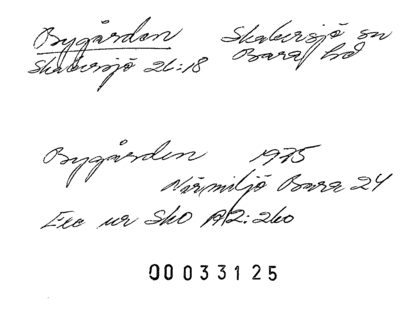 Bygården Skabersjö sn
Skabersjö 26:18 Bara hd
Bygården 1975
Närmiljö Bara 24
Exc ur SkO A2:260
00033125